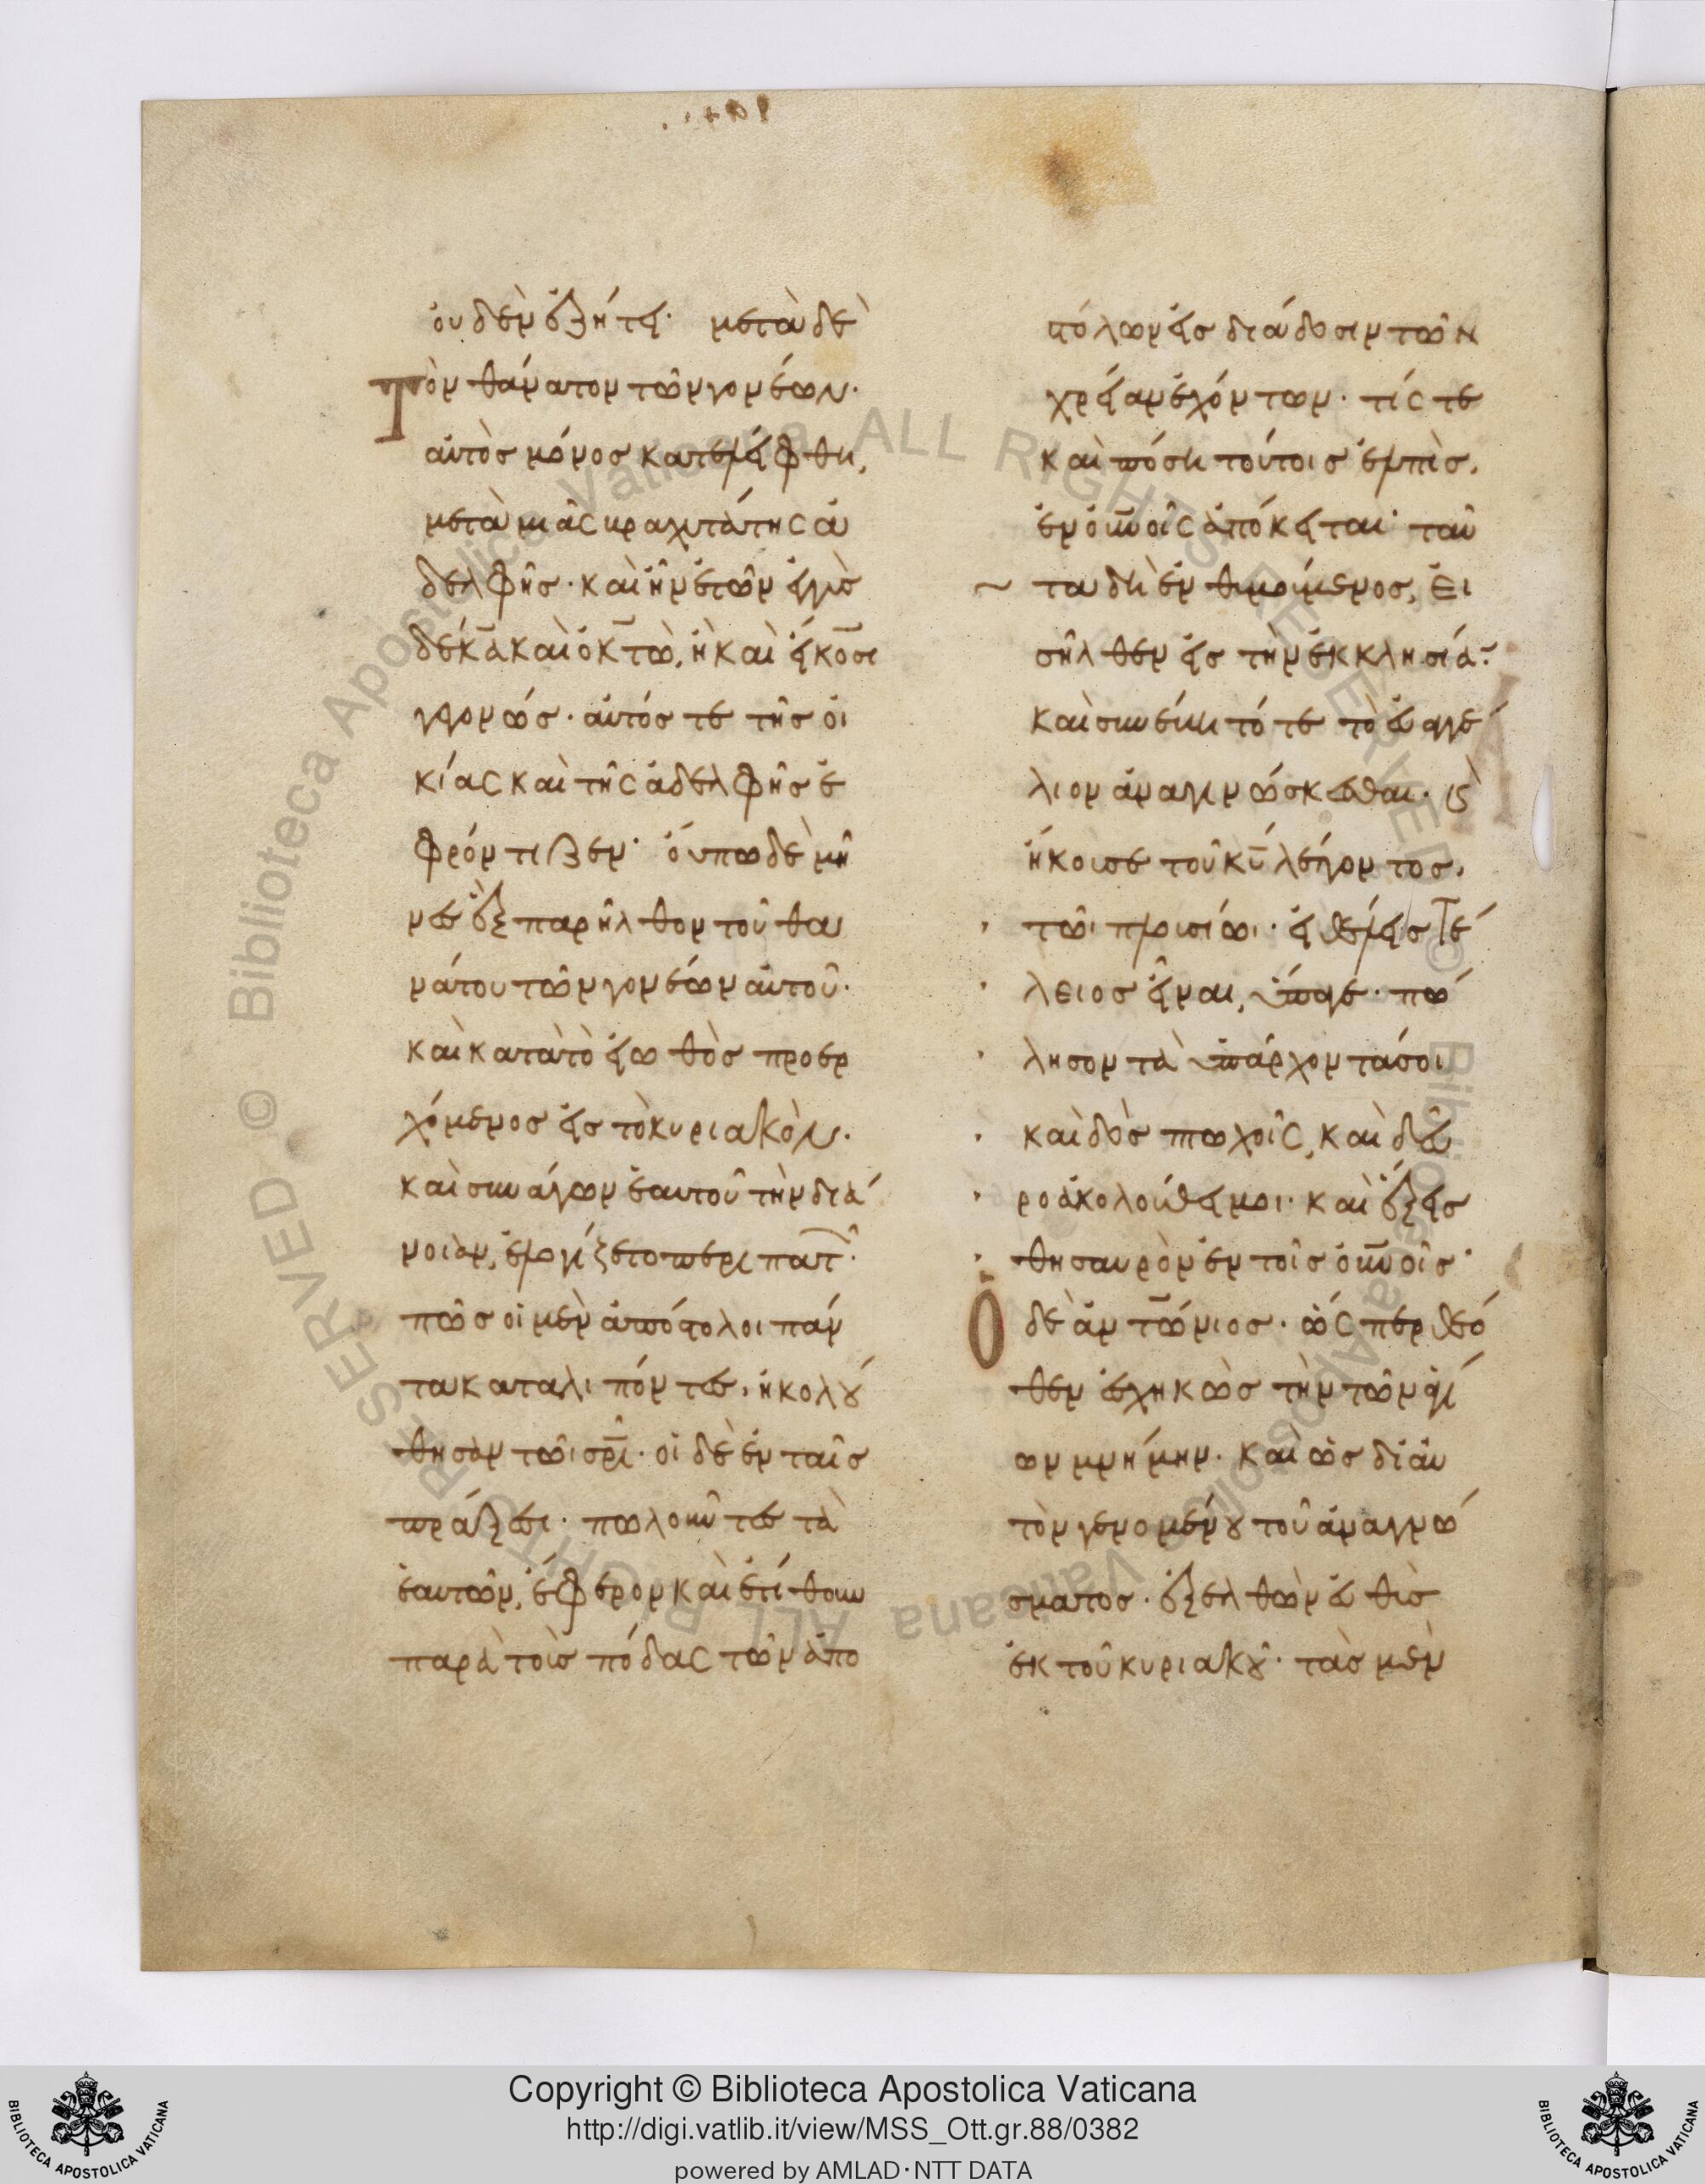 οὐδὲν ἐζήτει· μετὰ δὲ
τὸν θάνατον τῶν γονέων·
αὐτὸς μόνος κατελείφθη,
μετὰ μιᾶς βραχυτάτης ἀ
δελφῆς· καὶ ἦν ἐτῶν ἐγγὺς
δέκα καὶ ὀκτὼ, ἢ καὶ εἴκοσι
γεγονώς· αὐτός τε τῆς οἰ
κίας καὶ τῆς ἀδελφῆς ἐ
φρόντιζεν· οὔπω δὲ μῆ
νες ἓξ παρῆλθον τοῦ θα
νάτου τῶν γονέων αὐτοῦ·
καὶ κατὰ τὸ εἰωθὸς προσερ
χόμενος εἰς τὸ κυριακὸν·
καὶ συνάγων ἑαυτοῦ τὴν διά
νοιαν, ἐλογίζετο περὶ παντ
πῶς οἱ μὲν ἀπόστολοι πάν
τα καταλιπόντες, ἠκολού
θησαν τῶι σρι· οἱ δὲ ἐν ταῖς
πράξεσι· πωλοῦντες τὰ
ἑαυτῶν, ἔφερον καὶ ἐτίθουν
παρὰ τοὺς πόδας τῶν ἀπο
στόλων εἰς διάδοσιν τῶν
χρείαν ἐχόντων· τίς τε
καὶ πόση τούτοις ἐλπὶς,
ἐν οὐνοῖς ἀπόκειται· ταῦ
τα δὴ ἐνθυμούμενος, εἰ
σῆλθεν εἰς τὴν ἐκκλησίαν·
καὶ συνέβη τότε τὸ εὐαγγέ
λιον ἀναγινώσκεσθαι· καὶ
ἤκουσε τοῦ κυ λέγοντος,
τῶι πλουσίωι· εἰ θέλεις τέ
λειος εἶναι, ὕπαγε· πώ
λησον τὰ ὑπάρχοντά σοι
καὶ δὸς πτωχοῖς, καὶ δεῦ
ρο ἀκολούθει μοι· καὶ ἕξεις
θησαυρὸν ἐν τοῖς οὐνοῖς·
Ὁ δὲ ἀντώνιος· ὥς περ θεό
θεν ἐσχηκὼς τὴν τῶν ἁγί
ων μνήμην· καὶ ὡς δι' αὐ
τὸν γενομένου τοῦ ἀναγνώ
σματος· ἐξελθὼν εὐθὺς
ἐκ τοῦ κυριακοῦ· τὰς μὲν
Copyright © Biblioteca Apostolica Vaticana
http://digi.vatlib.it/view/MSS_Ott.gr.88/0382
powered by AMLAD·NTT DATA
BIBLIOTECA APOSTOLICA VATICANA
BIBLIOTECA APOSTOLICA VATICANA
Biblioteca Apostolica Vaticana ALL RIGHTS RESERVED ©
Biblioteca Apostolica Vaticana ALL RIGHTS RESERVED ©